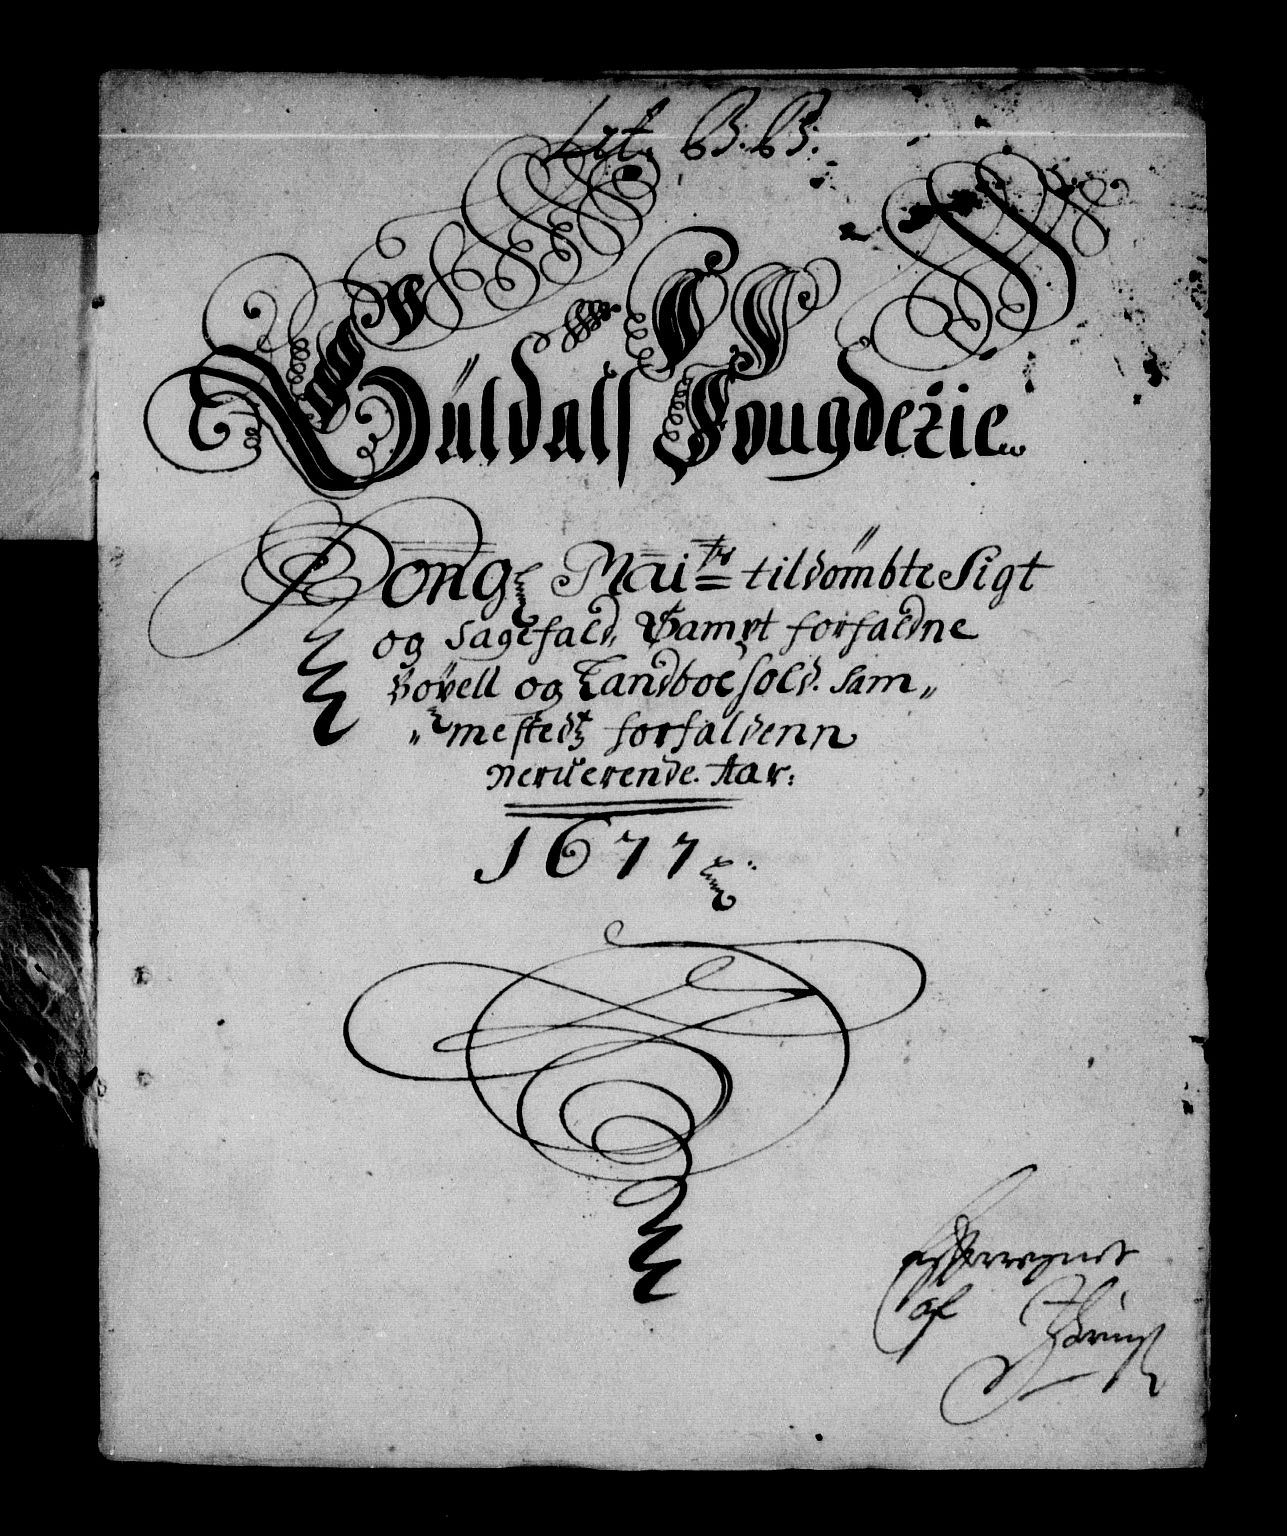 Lit. B. B.
Büldals Fougderie
Kong Maitz tildömbte Sigt
og Sagefald, Sampt forfaldne
Böxell og Landboesold. sam„
„mestedz forfaldenn
neruerende. Aar:
1677
af